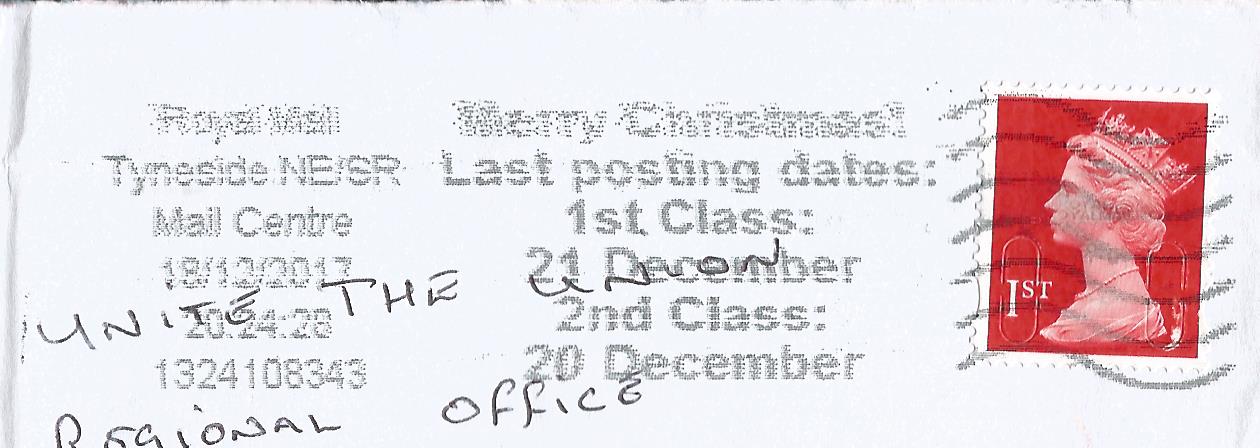 Royal Mail
Tyneside NE/SR
Mail Centre
18/12/2017
20:24:28
1324108343
Merry Christmas!
Last posting dates:
1st Class:
21 December
2nd Class:
20 December
1ST
UNITE THE UNION
REGIONAL OFFICE